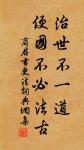 治世不一道
便國不必法古
商君書更法詞典網集